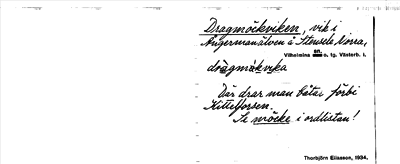 Dragmöckviken, vik i
Ångermanälven å Stensele Norra,
Vilhelmina sn. o. tg. Västerb. l.
drågmäkvika
Där drar man båtar förbi
Kittelforsen.
Se möcke i ordlistan!
Thorbjörn Eliasson, 1934.